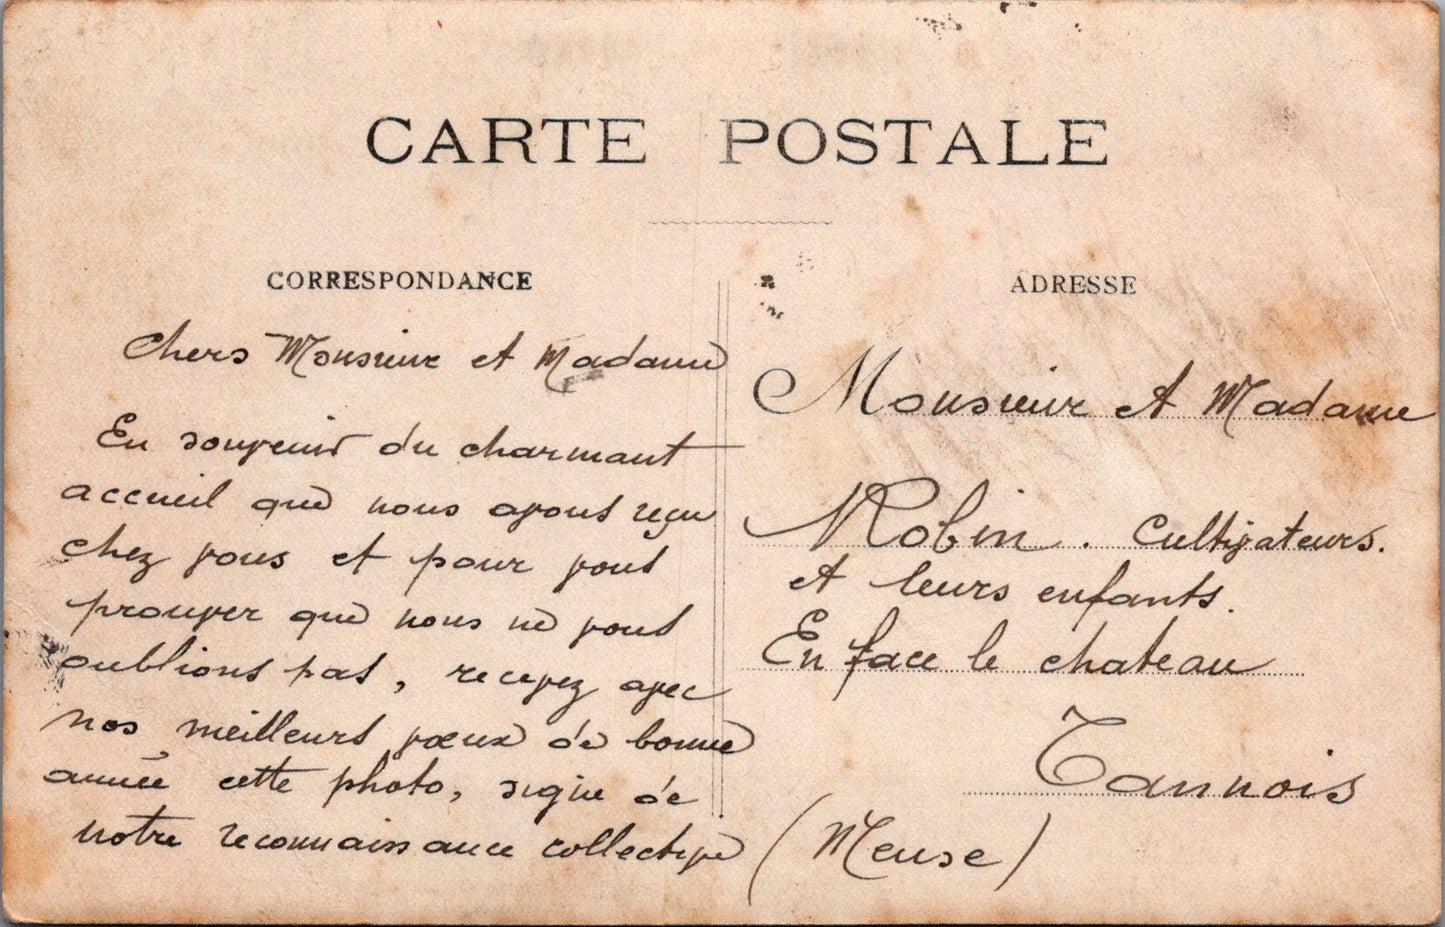 CARTE POSTALE
CORRESPONDANCE
Chers Monsieur et Madame
En souvenir du charmant
accueil que nous avons reçu
chez vous et pour vous
prouver que nous ne vous
oublions pas, recevez avec
nos meilleurs vœux de bonne
année cette photo, signe de
notre reconnaissance collective
ADRESSE
Monsieur et Madame
Robin. Cultivateurs.
et leurs enfants.
En face le chateau
Tannois
(Meuse)